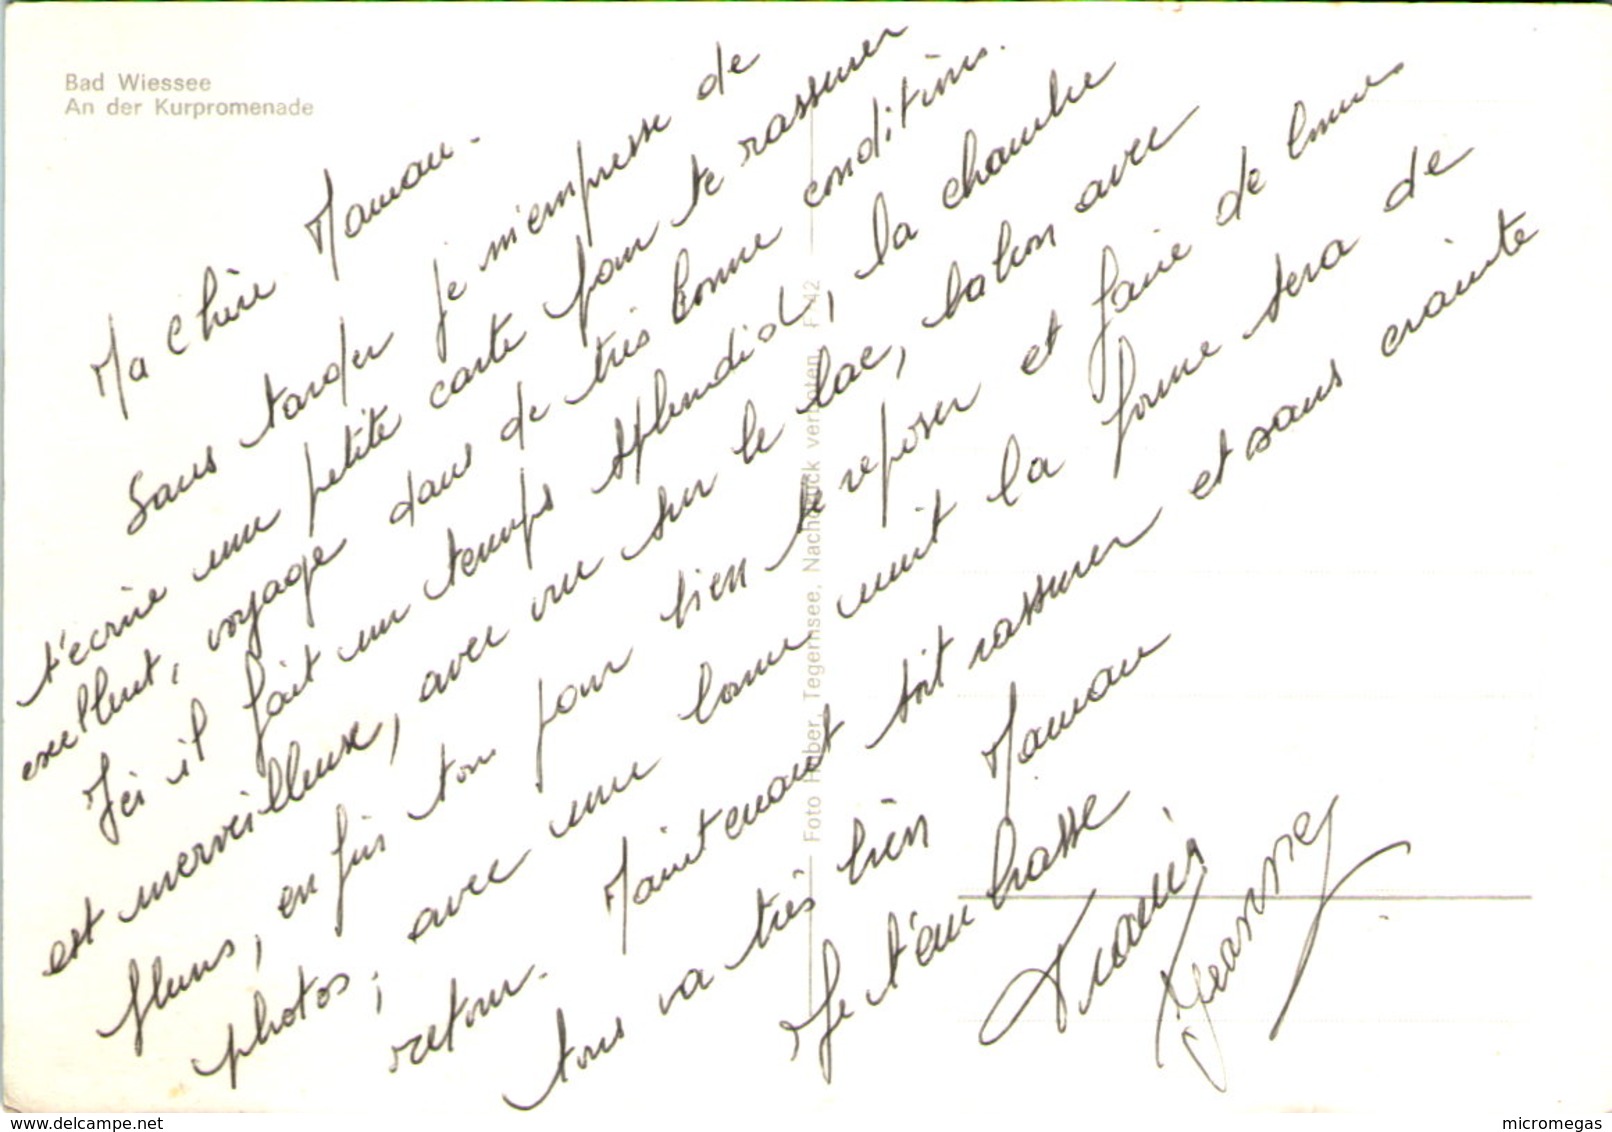 Bad Wiessee
An der Kurpromenade
Ma chère Maman.
Sans tarder je m'empresse de
t'écrire une petite carte pour te rassurer
excellent, voyage dans de très bonne conditions.
Ici il fait un temps splendid, la chambre
est merveilleuse, avec vue sur le lac, balcon avec
fleurs, en fin tou pour bien se reposer et faire de bonnes
photos; avec une bonne nuit la forme sera de
retour. Maintenant soit rassurer et sans crainte
tous va très bien Maman
Je t'em brasse
Francis
Jeanne
Foto Huber, Tegernsee, Nachdruck verboten F 42
delcampe.net
micromegas